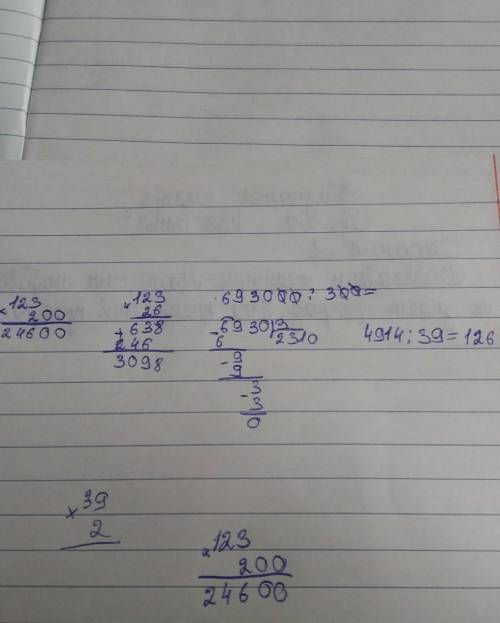 ×123
200
24600
×123
26
+638
246
3098
693000 : 300 =
-6930|3
6 2310
-9
9
-3
3
0
4914 : 39 = 126
×39
2
×123
200
24600